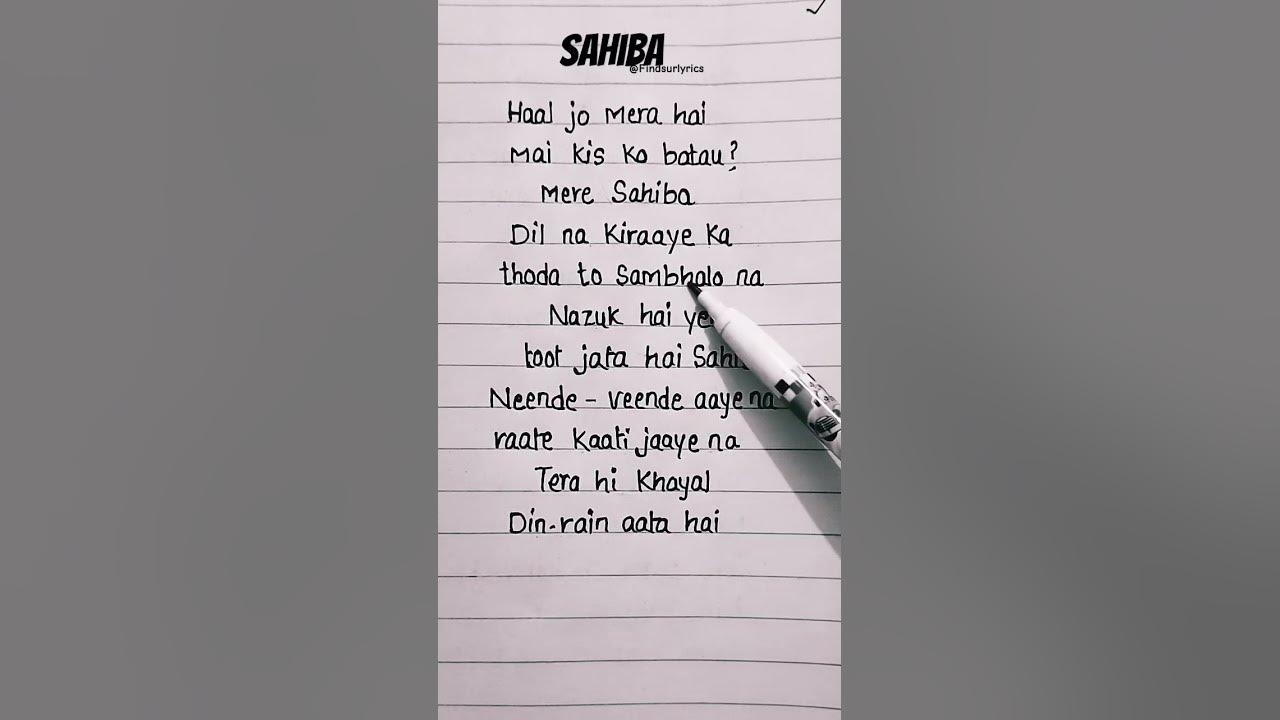 SAHIBA
@Findsurlyrics
Haal jo mera hai
mai kis ko batau?
mere Sahiba
Dil na Kiraaye Ka
thoda to Sambhalo na
Nazuk hai
toot jata hai
Neende - veende aaye na
raate Kaati jaaye na
Tera hi Khayal
Din-rain aata hai